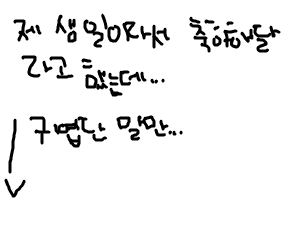 제 생일이라서 축하해달
라고 했는데...
귀엽단 말만...